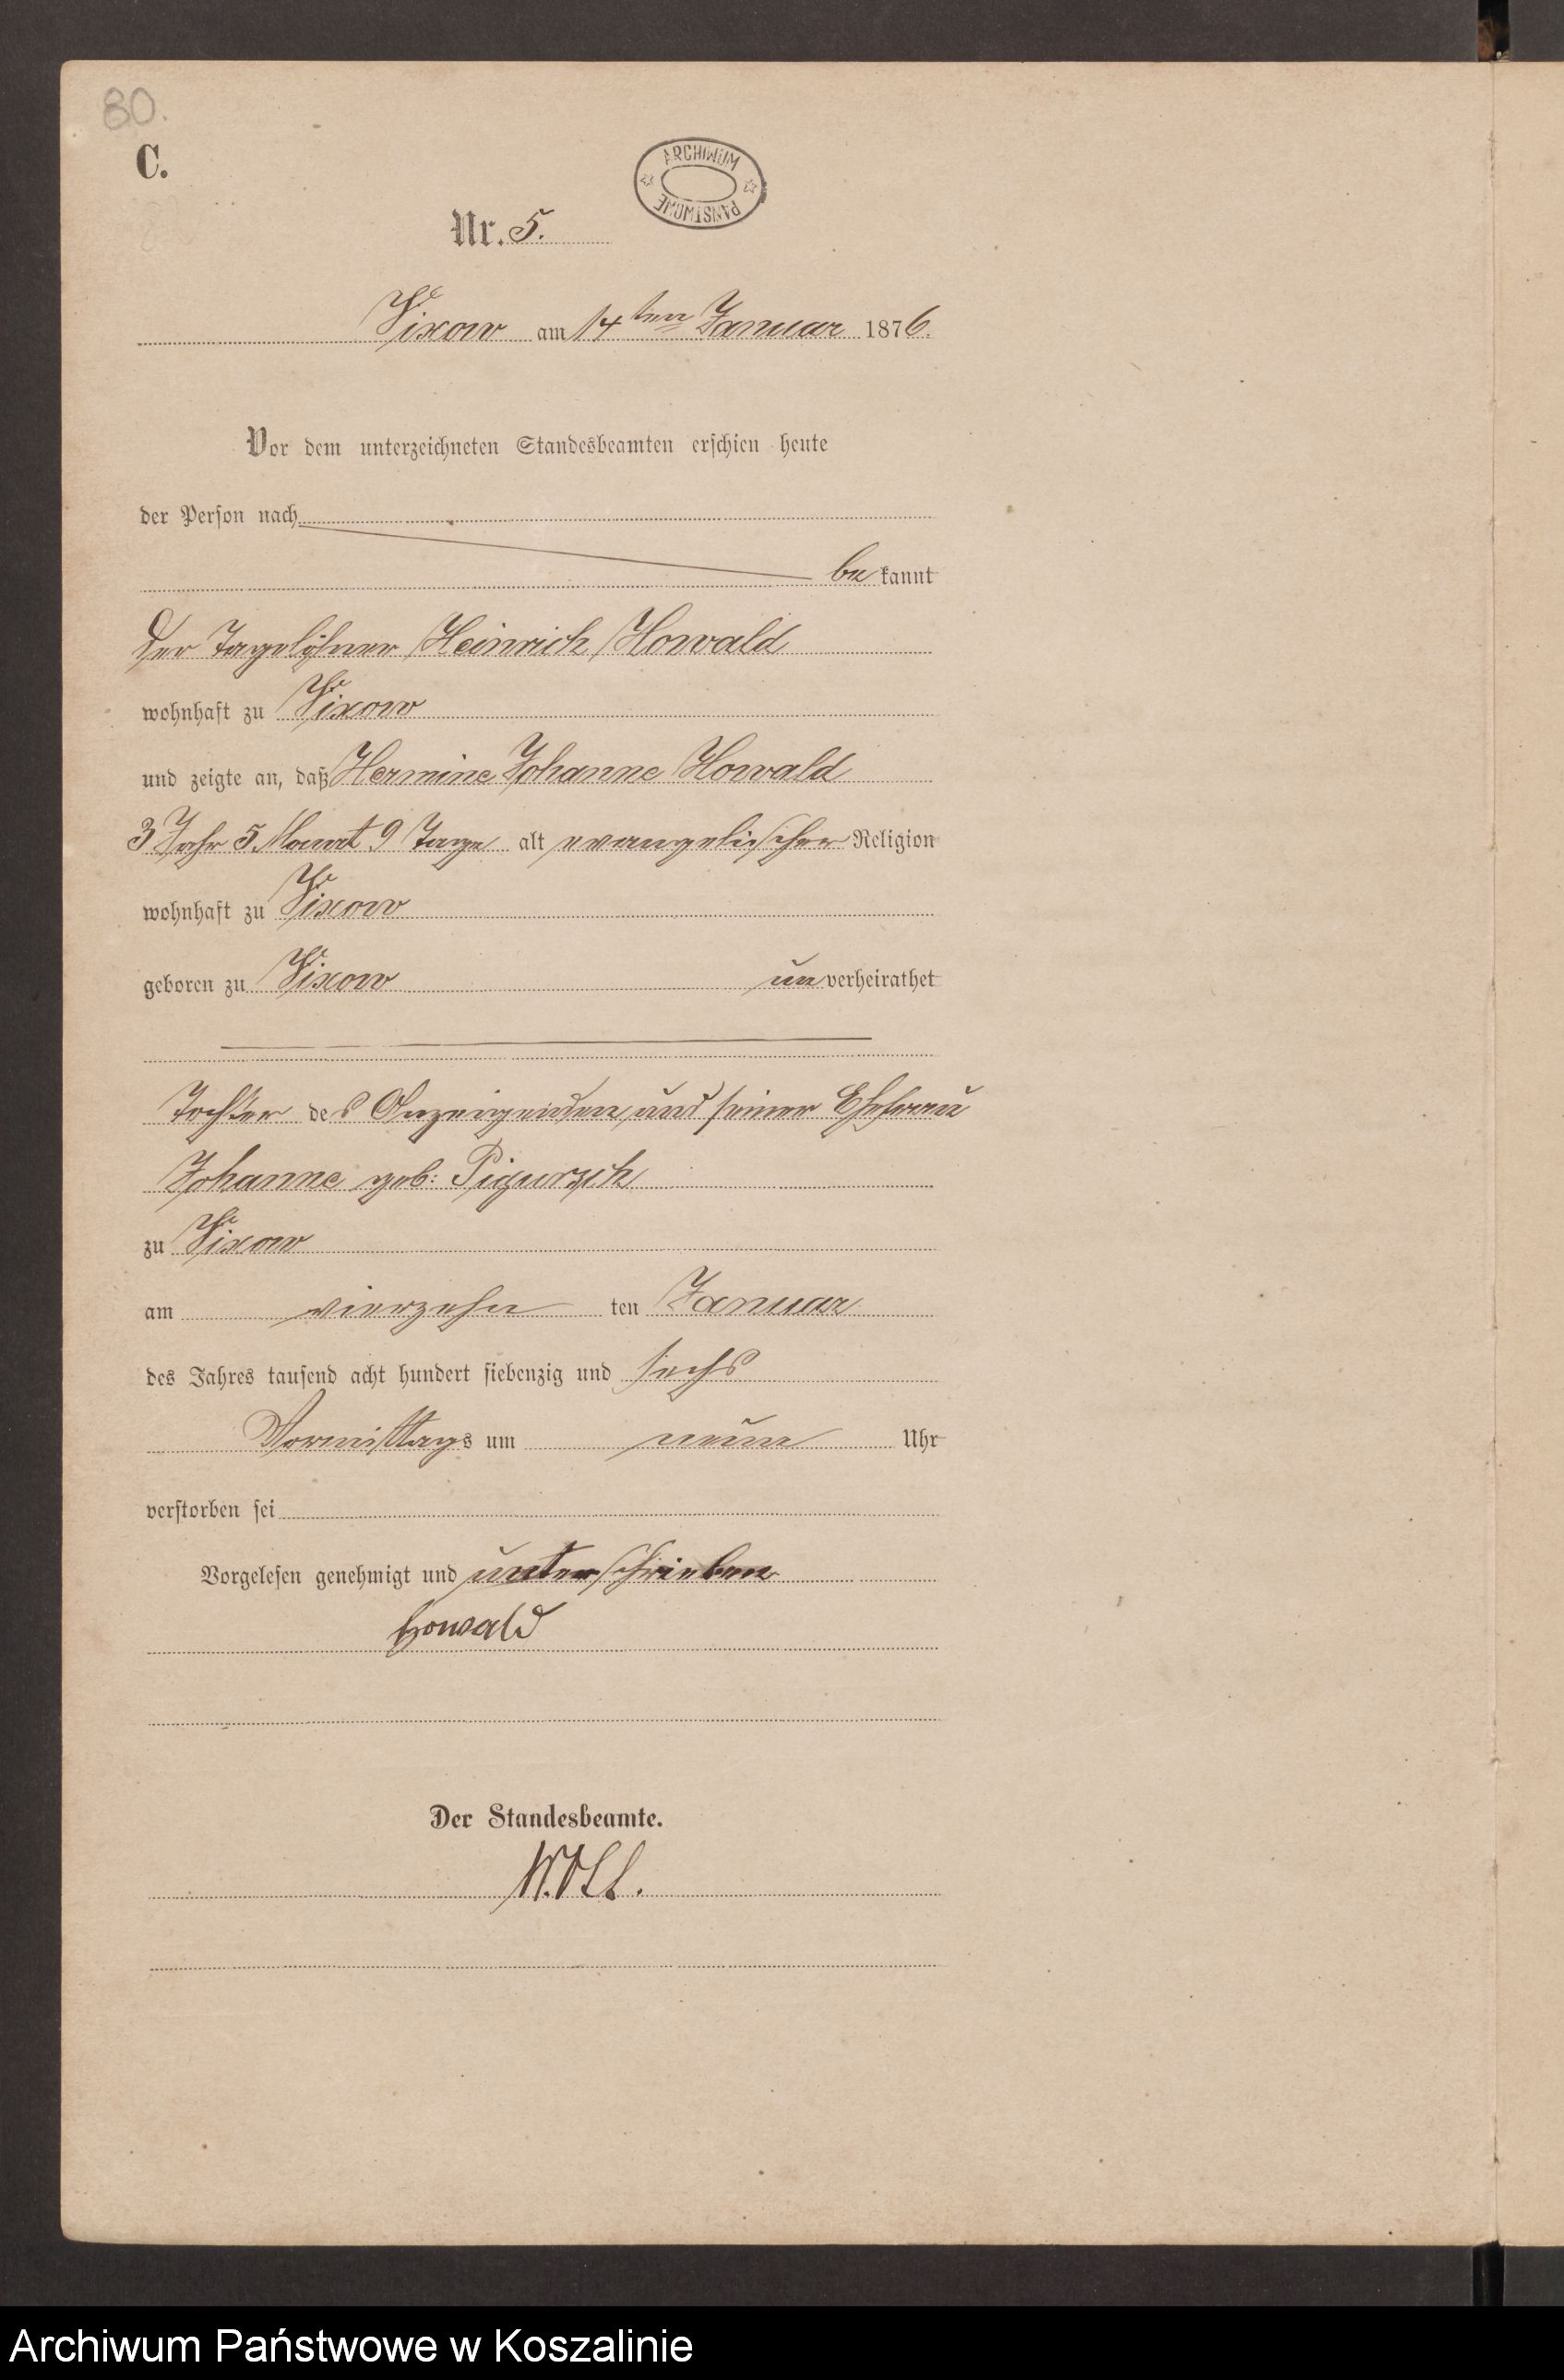 80.
C.
ARCHIWUM PAŃSTWOWE
Nr. 5.
Vixow am 14ten Januar 1876.
Vor dem unterzeichneten Standesbeamten erschien heute
der Person nach
bekannt
der Tagelöhner Heinrich Howald
wohnhaft zu Vixow
und zeigte an, daß Hermine Johanne Howald
3 Jahr 5 Monat 9 Tage alt evangelischer Religion
wohnhaft zu Vixow
geboren zu Vixow unverheirathet
Tochter des Anzeigenden und seiner Ehefrau
Johanne geb: Pigursch
zu Vixow
am vierzehn ten Januar
des Jahres tausend acht hundert siebenzig und sechs
Vormittags um neun Uhr
verstorben sei
Vorgelesen genehmigt und unterschrieben
Howald
Der Standesbeamte.
Archiwum Państwowe w Koszalinie